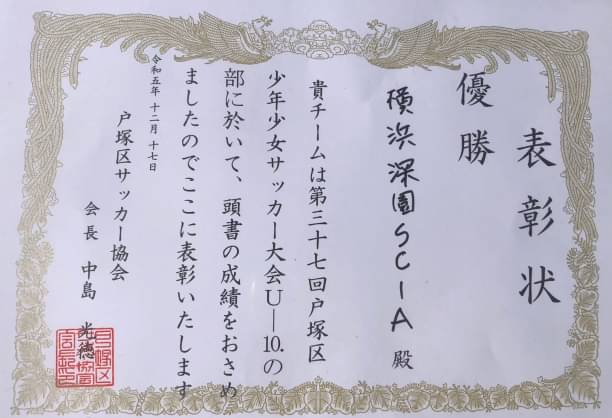 表彰状
優勝
横浜深園SCIA 殿
貴チームは第三十七回戸塚区
少年少女サッカー大会U―10.の
部に於いて、頭書の成績をおさめ
ましたのでここに表彰いたします
令和五年十二月十七日
戸塚区サッカー協会
会長 中島 光徳